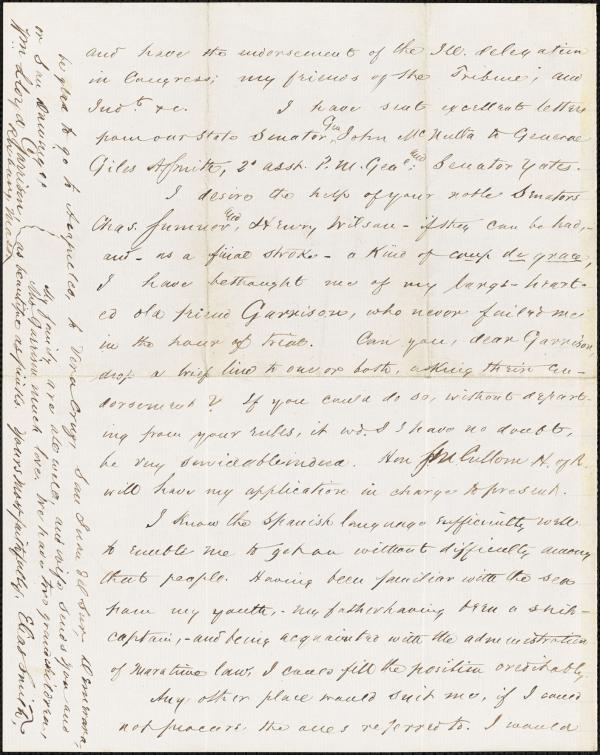 and have the endorsement of the Ill. delegation
in Congress; my friends of the Tribune; and
Indt. &c. I have sent excellent letters
from our State Senator, Gen John McNulta to General
Giles A Smith, 2d asst. P. M. Genl; and Senator Yates.
I desire the help of your noble Senators
Chas. Sumner, and Henry Wilson - if they can be had, -
and - as a final stroke - a kind of coup de grace,
I have bethought me of my large-heart-
ed old friend Garrison, who never failed me
in the hour of trial. Can you, dear Garrison,
drop a brief line to one or both, asking their en-
dorsement? If you could do so, without depart-
ing from your rules, it wd. I have no doubt,
be very serviceable indeed. Hon Cullom H. of R.
will have my application in charge to present.
I know the Spanish language sufficiently well
to enable me to get on without difficulty among
that people. Having been familiar with the sea
from my youth, - my father having been a ship-
captain, - and being acquainted with the administration
of Maratime law, I could fill the position creditably.
Any other place would suit me, if I could
not procure the ones referred to. I would
be glad to go to Acapulco, to Vera Cruz, San Juan del Sur, Demerara,
or San
My family are all well, and wife sends you and
Mrs. Garrison much love. We have two grandchildren,
as beautiful as pinks. Yours most faithfully, Elias Smith.
Wm. Lloyd Garrison,
Roxbury, Mass.